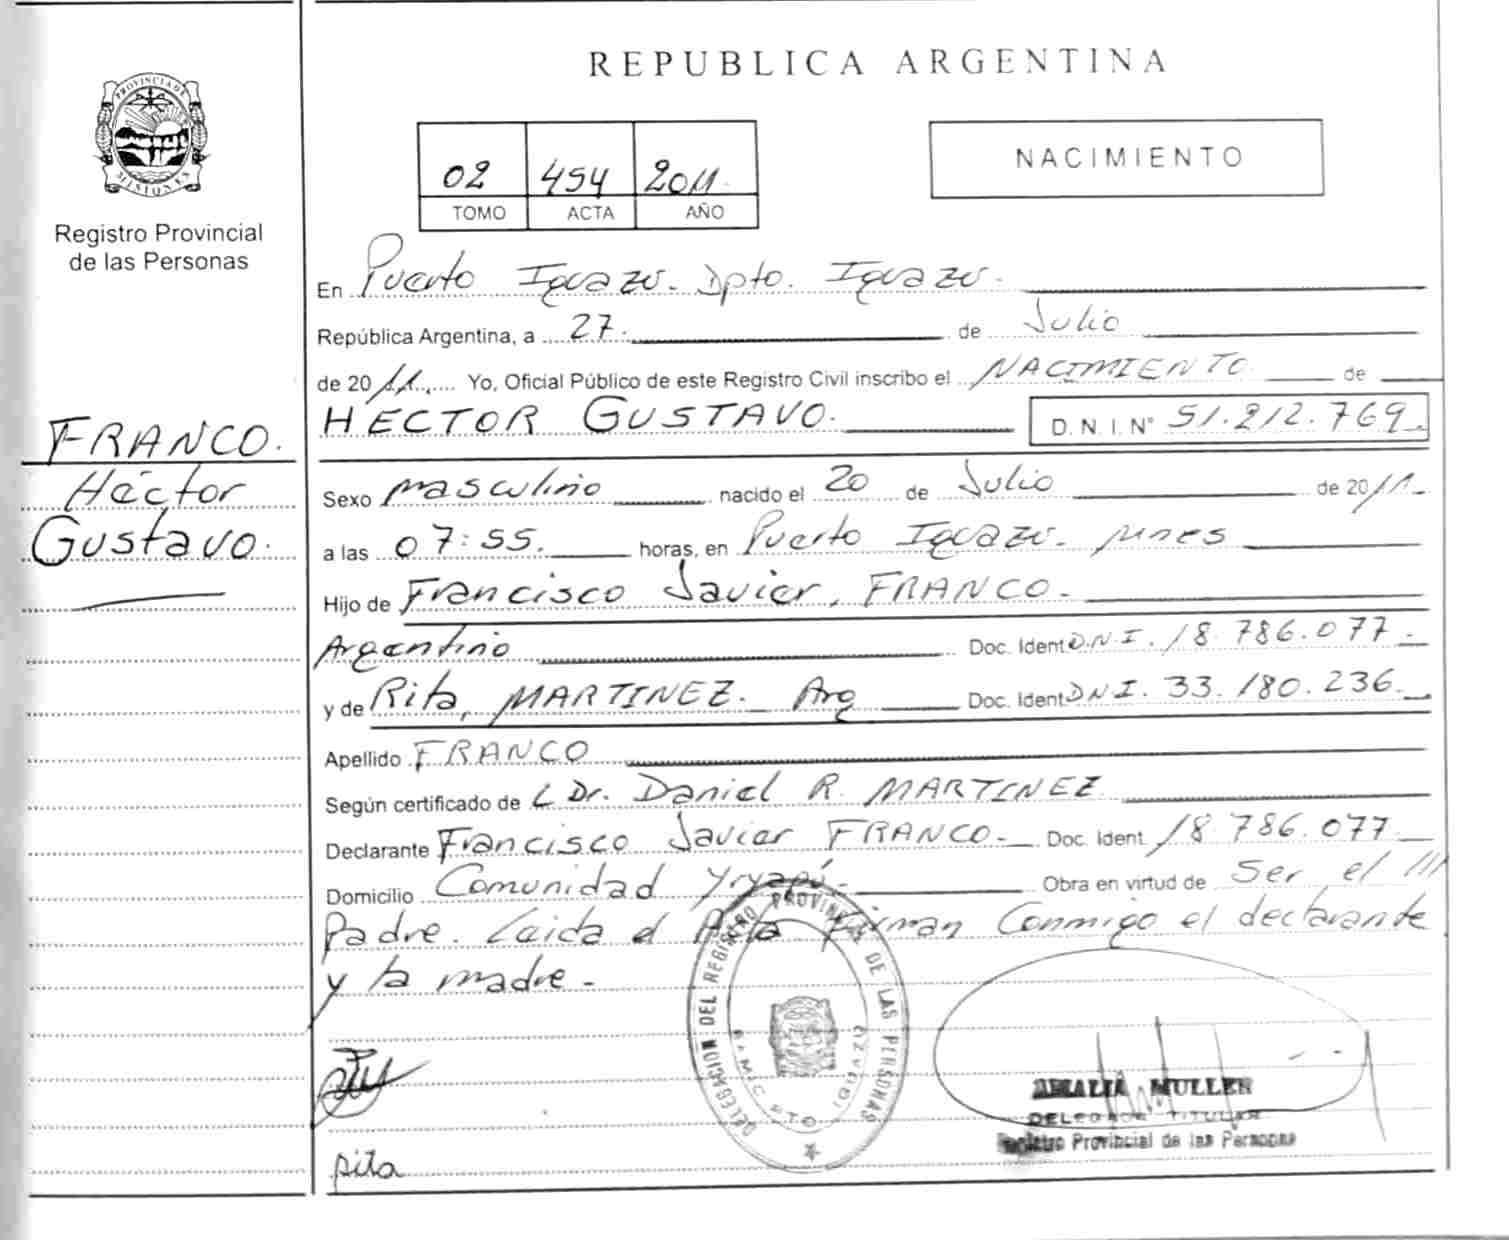 REPUBLICA ARGENTINA
PROVINCIA DE
MISIONES
Registro Provincial
de las Personas
02 454 2011
TOMO ACTA AÑO
NACIMIENTO
En Puerto Iguazú. Dpto. Iguazú.
República Argentina, a 27. de Julio
de 2011. Yo, Oficial Público de este Registro Civil inscribo el NACIMIENTO de
HECTOR GUSTAVO. D. N. I. N° 51.212.769.
FRANCO.
Héctor
Gustavo.
Sexo masculino nacido el 20 de Julio de 2011.
a las 07:55. horas, en Puerto Iguazú. Mnes
Hijo de Francisco Javier, FRANCO.
Argentino Doc. Ident D.N.I. 18.786.077.
y de Rita, MARTINEZ. Arg Doc. Ident D.N.I. 33.180.236.
Apellido FRANCO
Según certificado de Dr. Daniel R. MARTINEZ
Declarante Francisco Javier FRANCO. Doc. Ident. 18.786.077
Domicilio Comunidad Yryapú. Obra en virtud de Ser el
Padre. Leida el Acta Firman Conmigo el declarante
y la madre.
DELEGACION DEL REGISTRO PROVINCIAL DE LAS PERSONAS
PTO IGUAZU
rita
AMALIA MULLER
DELEGADA TITULAR
Registro Provincial de las Personas